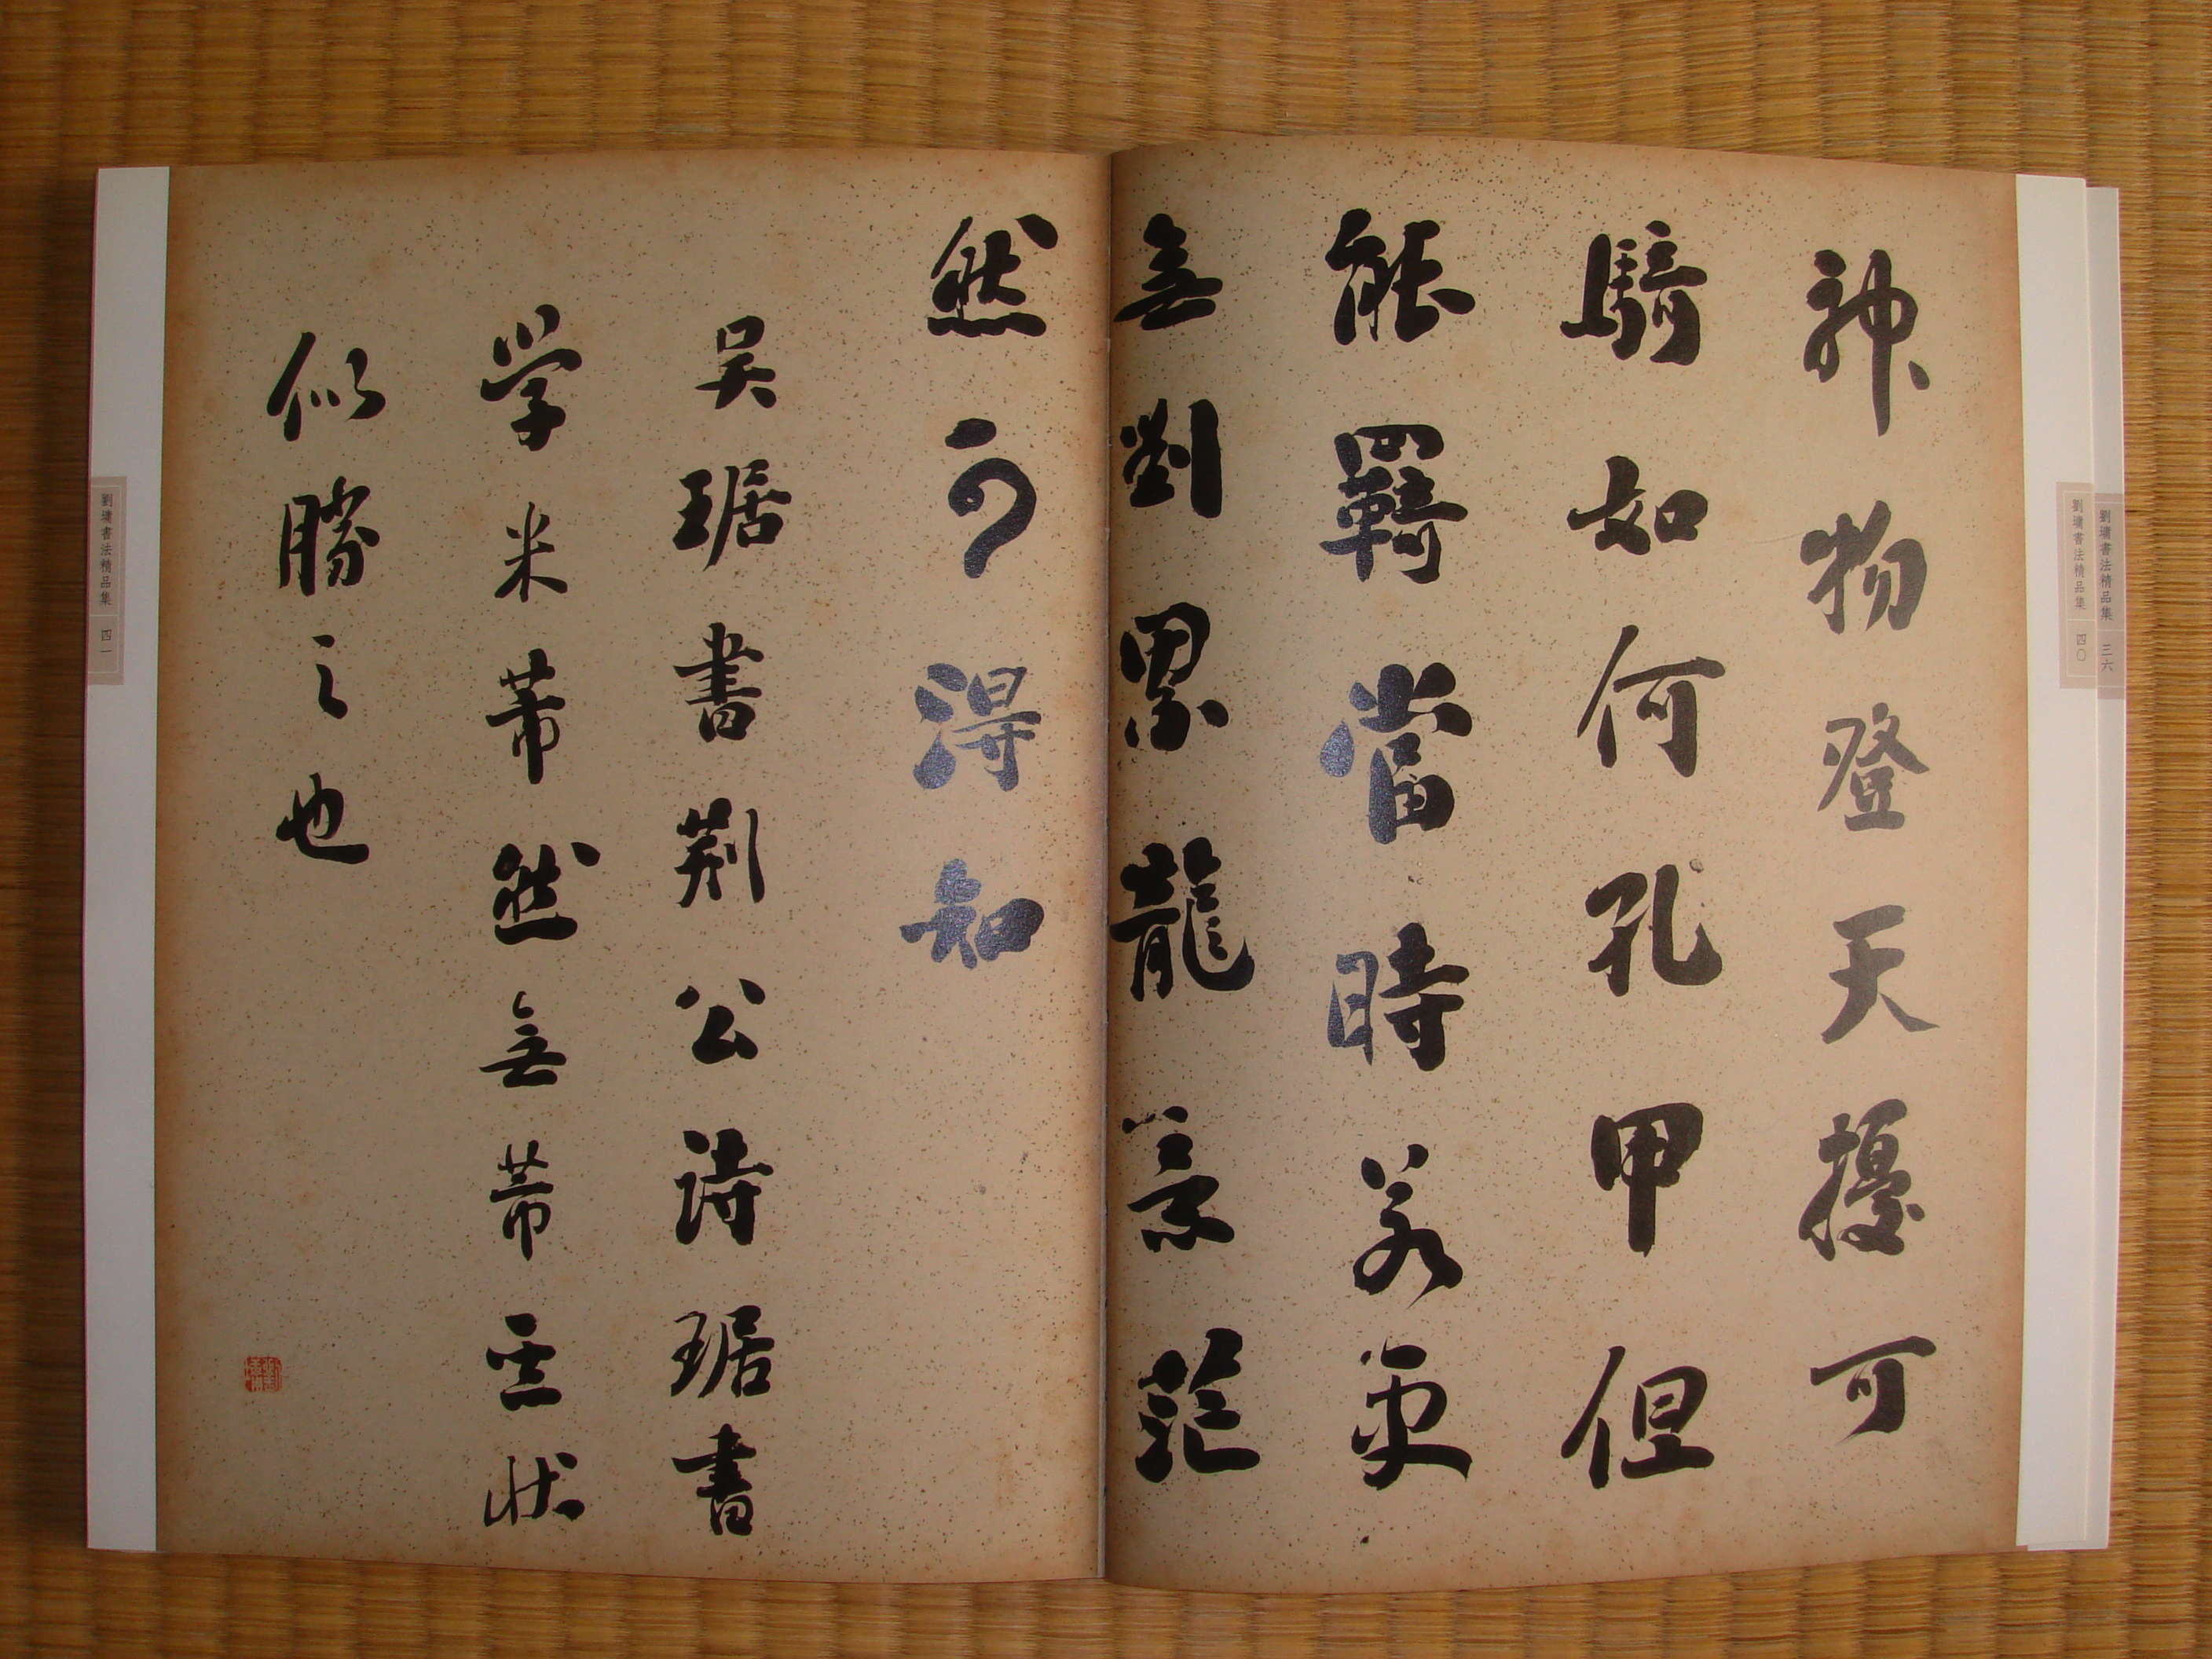 神物登天擾可
騎如何孔甲但
能羈當時若更
無劉累龍意茫
然可得知
吳琚書荆公詩琚書
学米芾然無芾雲狀
似勝之也
劉墉書法精品集 三六
劉墉書法精品集 四〇
劉墉書法精品集 四一